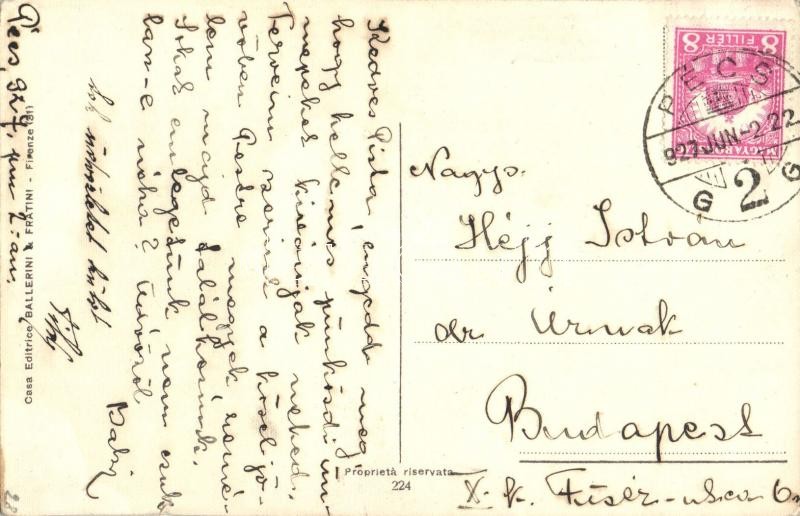 Kedves Pista, engedd meg
hogy kellemes pünkösdi ün-
nepeket kívánjak neked.
Terveim szerint a közel jö-
vőben Pestre megyek remé-
lem majd találkozunk.
Sokat emlegetünk nem csuk-
lasz-e néha? Üdvözöl
Babi
Sok üdvözletet küld
Pécs, 927, jun 2.-án.
Casa Editrice BALLERINI & FRATINI - Firenze (311)
Proprietà riservata
224
8 FILLÉR 8
MAGYARORSZÁG
PÉCS
927 JUN -2. 22
G 2 G
Nagys.
Héjj István
dr Úrnak
Budapest
X. k. Füsér-utca 6